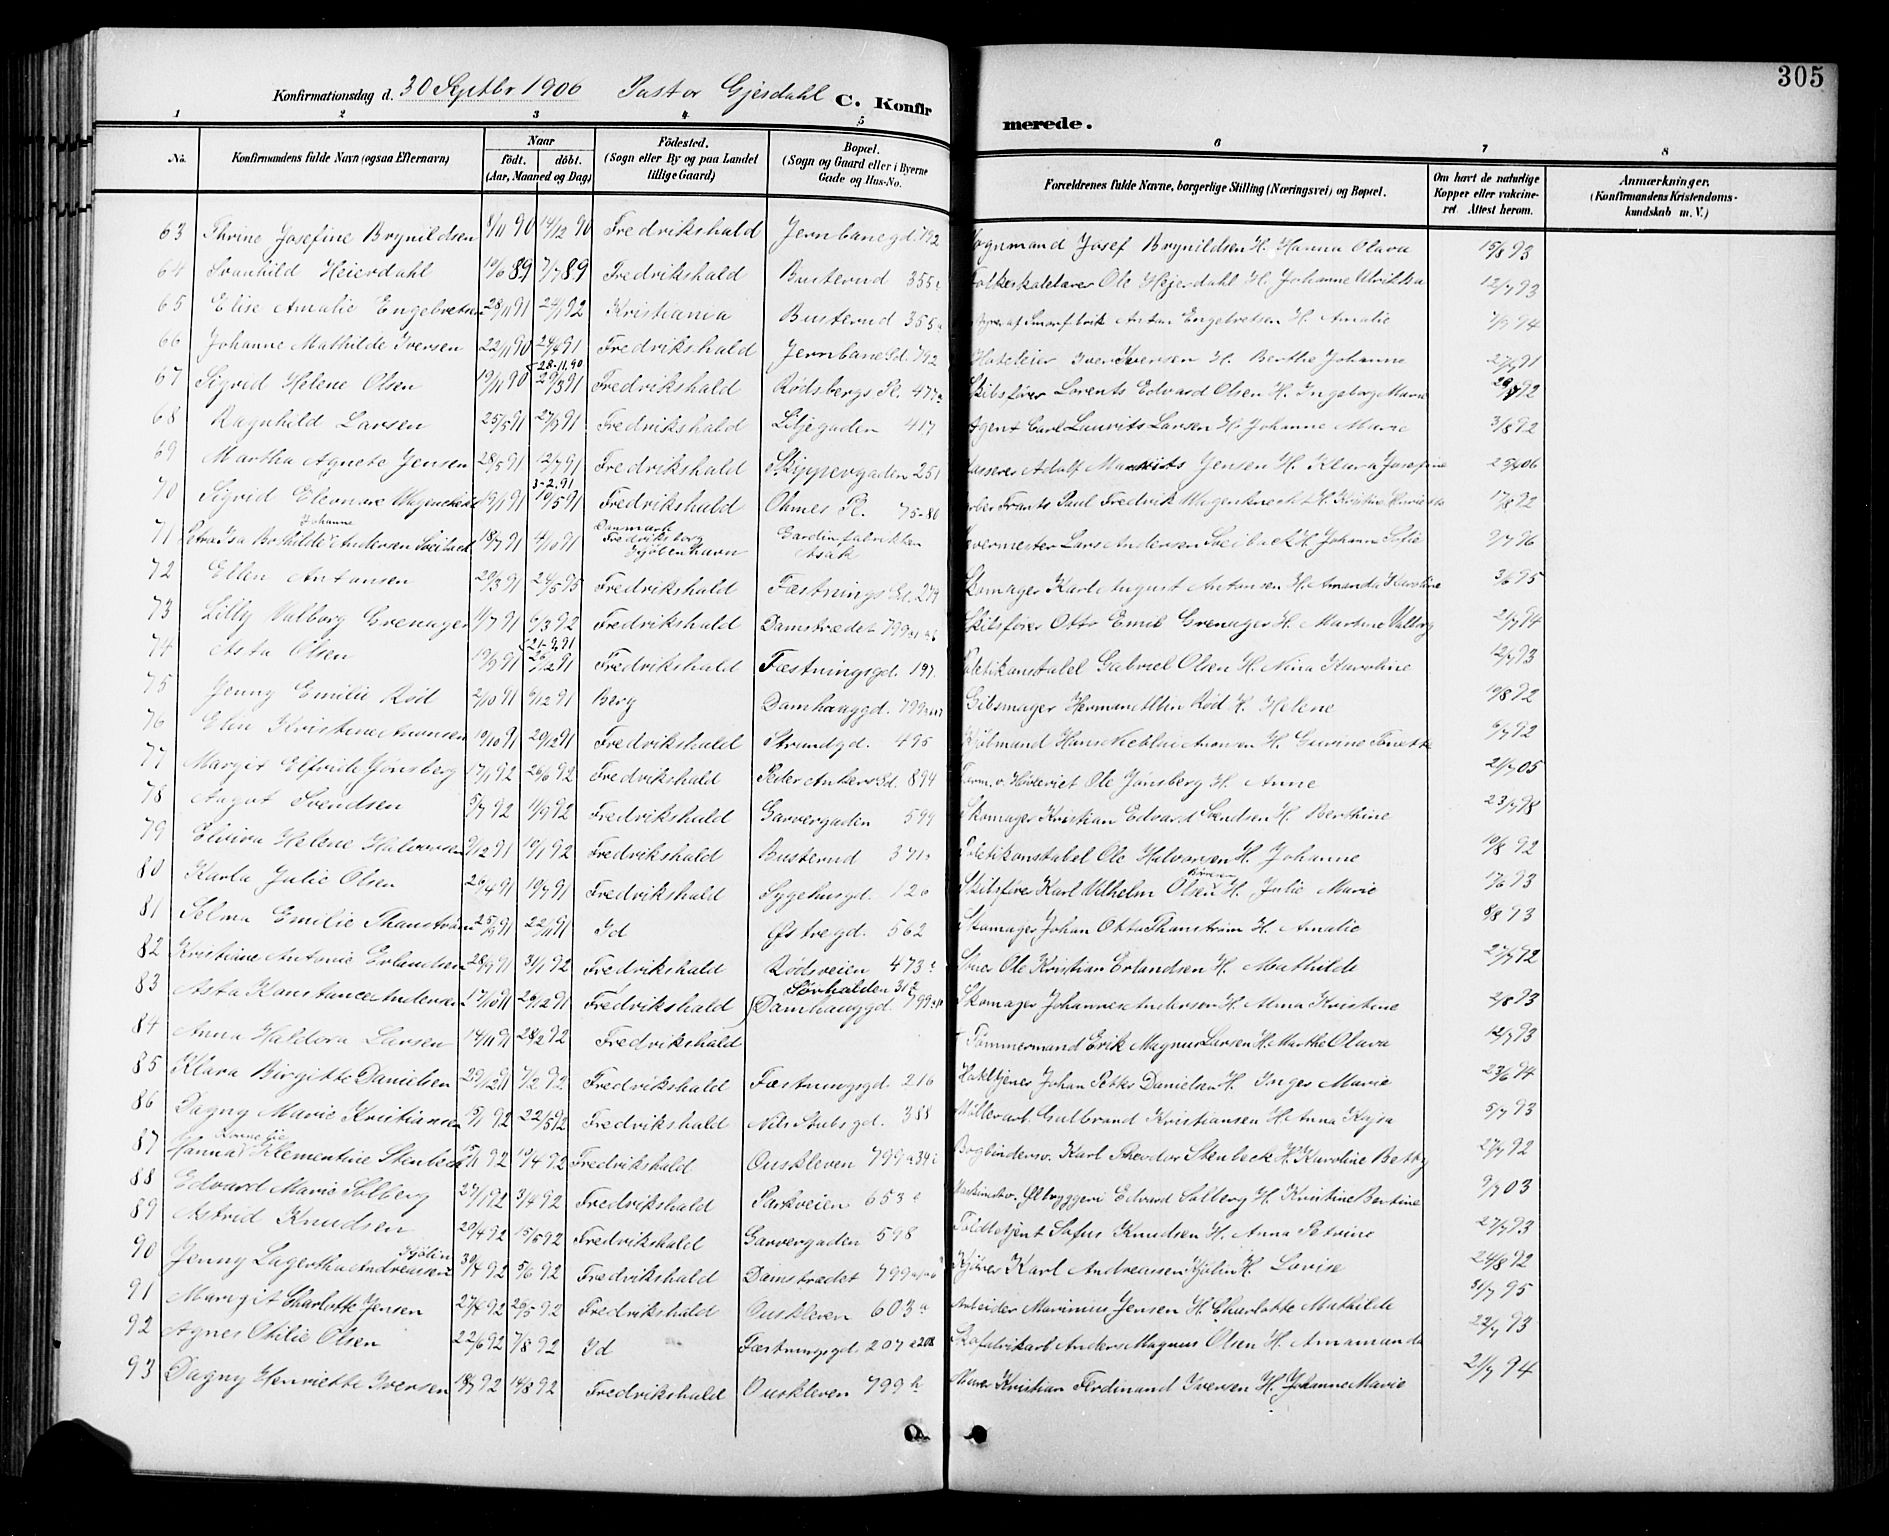 305
Konfirmationsdag d. 30 Septbr 1906 Pastor Gjesdahl C. Konfir
merede.
1 2 3 4 5 6 7 8
No. Konfirmandens fulde Navn (ogsaa Efternavn) Naar født. døbt. (Aar, Maaned og Dag) Födested. (Sogn eller By og paa Landet tillige Gaard) Bopæl. (Sogn og Gaard eller i Byerne Gade og Hus-No. Forældrenes fulde Navne, borgerlige Stilling (Næringsvei) og Bopæl. Om havt de naturlige Kopper eller vakcineret. Attest herom. Anmærkninger. (Konfirmandens Kristendomskundskab m. V.)
63 Thrine Josefine Brynildsen 8/11 90 14/12 90 Fredrikshald Jernbanegd. 792 Vognmand Josef Brynildsen H. Hanna Olava 15/8 93
64 Svanhild Heierdahl 19/6 89 7/7 89 Fredrikshald Busterud 355 Folkeskolelærer Ole Hejerdahl H. Johanne Ulrikka 12/7 93
65 Elise Amalie Engebretsen 28/11 91 24/1 92 Kristiania Busterud 355a Anton Engebretsen H. Amalie 94
66 Johanne Mathilde Iversen 22/11 90 24/4 91 Fredrikshald Jernbane Gd. 792 Iver Iversen H. Berthe Johanne 91
67 Sigrid Helene Olsen 19/11 90 28-11.90 29/3 91 Fredrikshald Rødsbergs Pl. 477a Skibsfører Lorents Edvard Olsen H. Ingeborg Marie 92
68 Ragnhild Larsen 25/5 91 27/9 91 Fredrikshald Liljegaden 417 Agent Carl Laurits Larsen H. Johanne Marie 3/8 92
69 Martha Agnete Jensen 28/5 91 12/7 91 Fredrikshald Skippergaden 251 Kasserer Adolf Mauritz Jensen H. Klara Josefine 06
70 Sigrid Eleonore Wagenknecht 19/1 91 3-2.91 10/5 91 Fredrikshald Ohmes Pl. 75-80 Frants Paul Fredrik Wagenknecht H. Kristine Henriette 17/8 92
71 Petra Isa Bothilde Johanne Andersen Sveibæck 18/7 91 4/10 91 Danmark Fredriksborg Kjøbenhavn Gardinfabrikken Asak Vævermester Lars Andersen Sveibæck H. Johanne Sofie 96
72 Ellen Antonsen 29/3 91 24/5 95 Fredrikshald Fæstnings Gd. 279 Skomager Karl August Antonsen H. Amanda Karoline 3/6 95
73 Lilly Valborg Grenager 11/7 91 6/3 92 Fredrikshald Damstrædet 799 Skibsfører Otto Emil Grenager H. Martine Valborg 94
74 Asta Olsen 19/9 91 21-9.91 26/12 91 Fredrikshald Fæstningsgd. 197 Politikonstabel Gabriel Olsen H. Nina Karoline 12/7 93
75 Jenny Emilie Rød 2/10 91 6/12 91 Berg Damhauggd. 799 Gibsmager Herman Rød H. Helene 19/8 92
76 Elin Kristine Aronsen 19/10 91 20/12 91 Fredrikshald Strandgd. 495 Aronsen H. Gurine Tonette 6/7 92
77 Margit Elfride Jønsberg 17/1 92 26/6 92 Fredrikshald Peder Ankers Gd. 894 Form. v. Høvleriet Ole Jønsberg H. Anne 21/7 05
78 Aagot Svendsen 5/7 92 11/9 92 Fredrikshald Garvergaden 599 Skomager Kristian Edvard Svendsen H. Berthine 23/7 98
79 Elvira Helene Halvorsen 9/12 91 10/1 92 Fredrikshald Busterud 371 Politikonstabel Ole Halvorsen H. Johanne 19/8 92
80 Karla Julie Olsen 26/4 91 19/7 91 Fredrikshald Sygehusgd. 126 Skibsfører Karl Vilhelm Olsen H. Julie Marie 17/6 93
81 Selma Emilie Thanstrøm 25/9 91 22/11 91 Id Østregd. 562 Skomager Johan Otto Thanstrøm H. Amalie 8/8 93
82 Kristine Antonie Erlandsen 28/9 91 31/1 92 Fredrikshald Rødsveien 473 Ole Kristian Erlandsen H. Mathilde 27/7 92
83 Asta Konstance Andersen 17/10 91 26/12 91 Fredrikshald Sørhalden 31 Damhauggd. 799 Skomager Johannes Andersen H. Alma Kristine 2/8 93
84 Anna Haldora Larsen 14/11 91 28/2 92 Fredrikshald Tømmermand Erik Magnus Larsen H. Marthe Olava 12/7 93
85 Klara Birgitte Danielsen 29/12 91 7/2 92 Fredrikshald Fæstningsgd. 216 Johan Petter Danielsen H. Inger Marie 23/6 94
86 Dagny Marie Kristiansen 15/1 92 22/5 92 Fredrikshald Nils Stubs gd. 388 Møllerarb. Gulbrand Kristiansen H. Anna Kajsa 5/7 93
87 Hanna Kornelie Klementine Stenbeck 92 10/4 92 Fredrikshald Ouskleven 799 Bogbindersv. Karl Theodor Stenbeck H. Karoline Betty 27/7 92
88 Edvard Marie Solberg 27/1 92 3/4 92 Fredrikshald Parkveien 653 Ølbryggeri Edvard Solberg H. Kristine Bertine 9/7 03
89 Astrid Knudsen 20/4 92 15/5 92 Fredrikshald Garvergaden 598 Toldbetjent Sofus Knudsen H. Anna Petrine 27/7 93
90 Jenny Lagertha Andreassen Kjølin 30/4 92 5/6 92 Fredrikshald Damstrædet 799 Kjører Karl Andreassen Kjølin H. Lovise 24/8 92
91 Margit Charlotte Jensen 92 26/5 92 Fredrikshald Ouskleven 603a Arbeider Marinius Jensen H. Charlotte Mathilde 31/7 95
92 Agnes Otilie Olsen 22/6 92 7/8 92 Id Fæstningsgd. 207 Skofabrikarb. Anders Magnus Olsen H. Annamanda 22/7 93
93 Dagny Henriette Iversen 18/7 92 14/8 92 Fredrikshald Ouskleven 799 Murer Kristian Ferdinand Iversen H. Johanne Marie 21/7 94